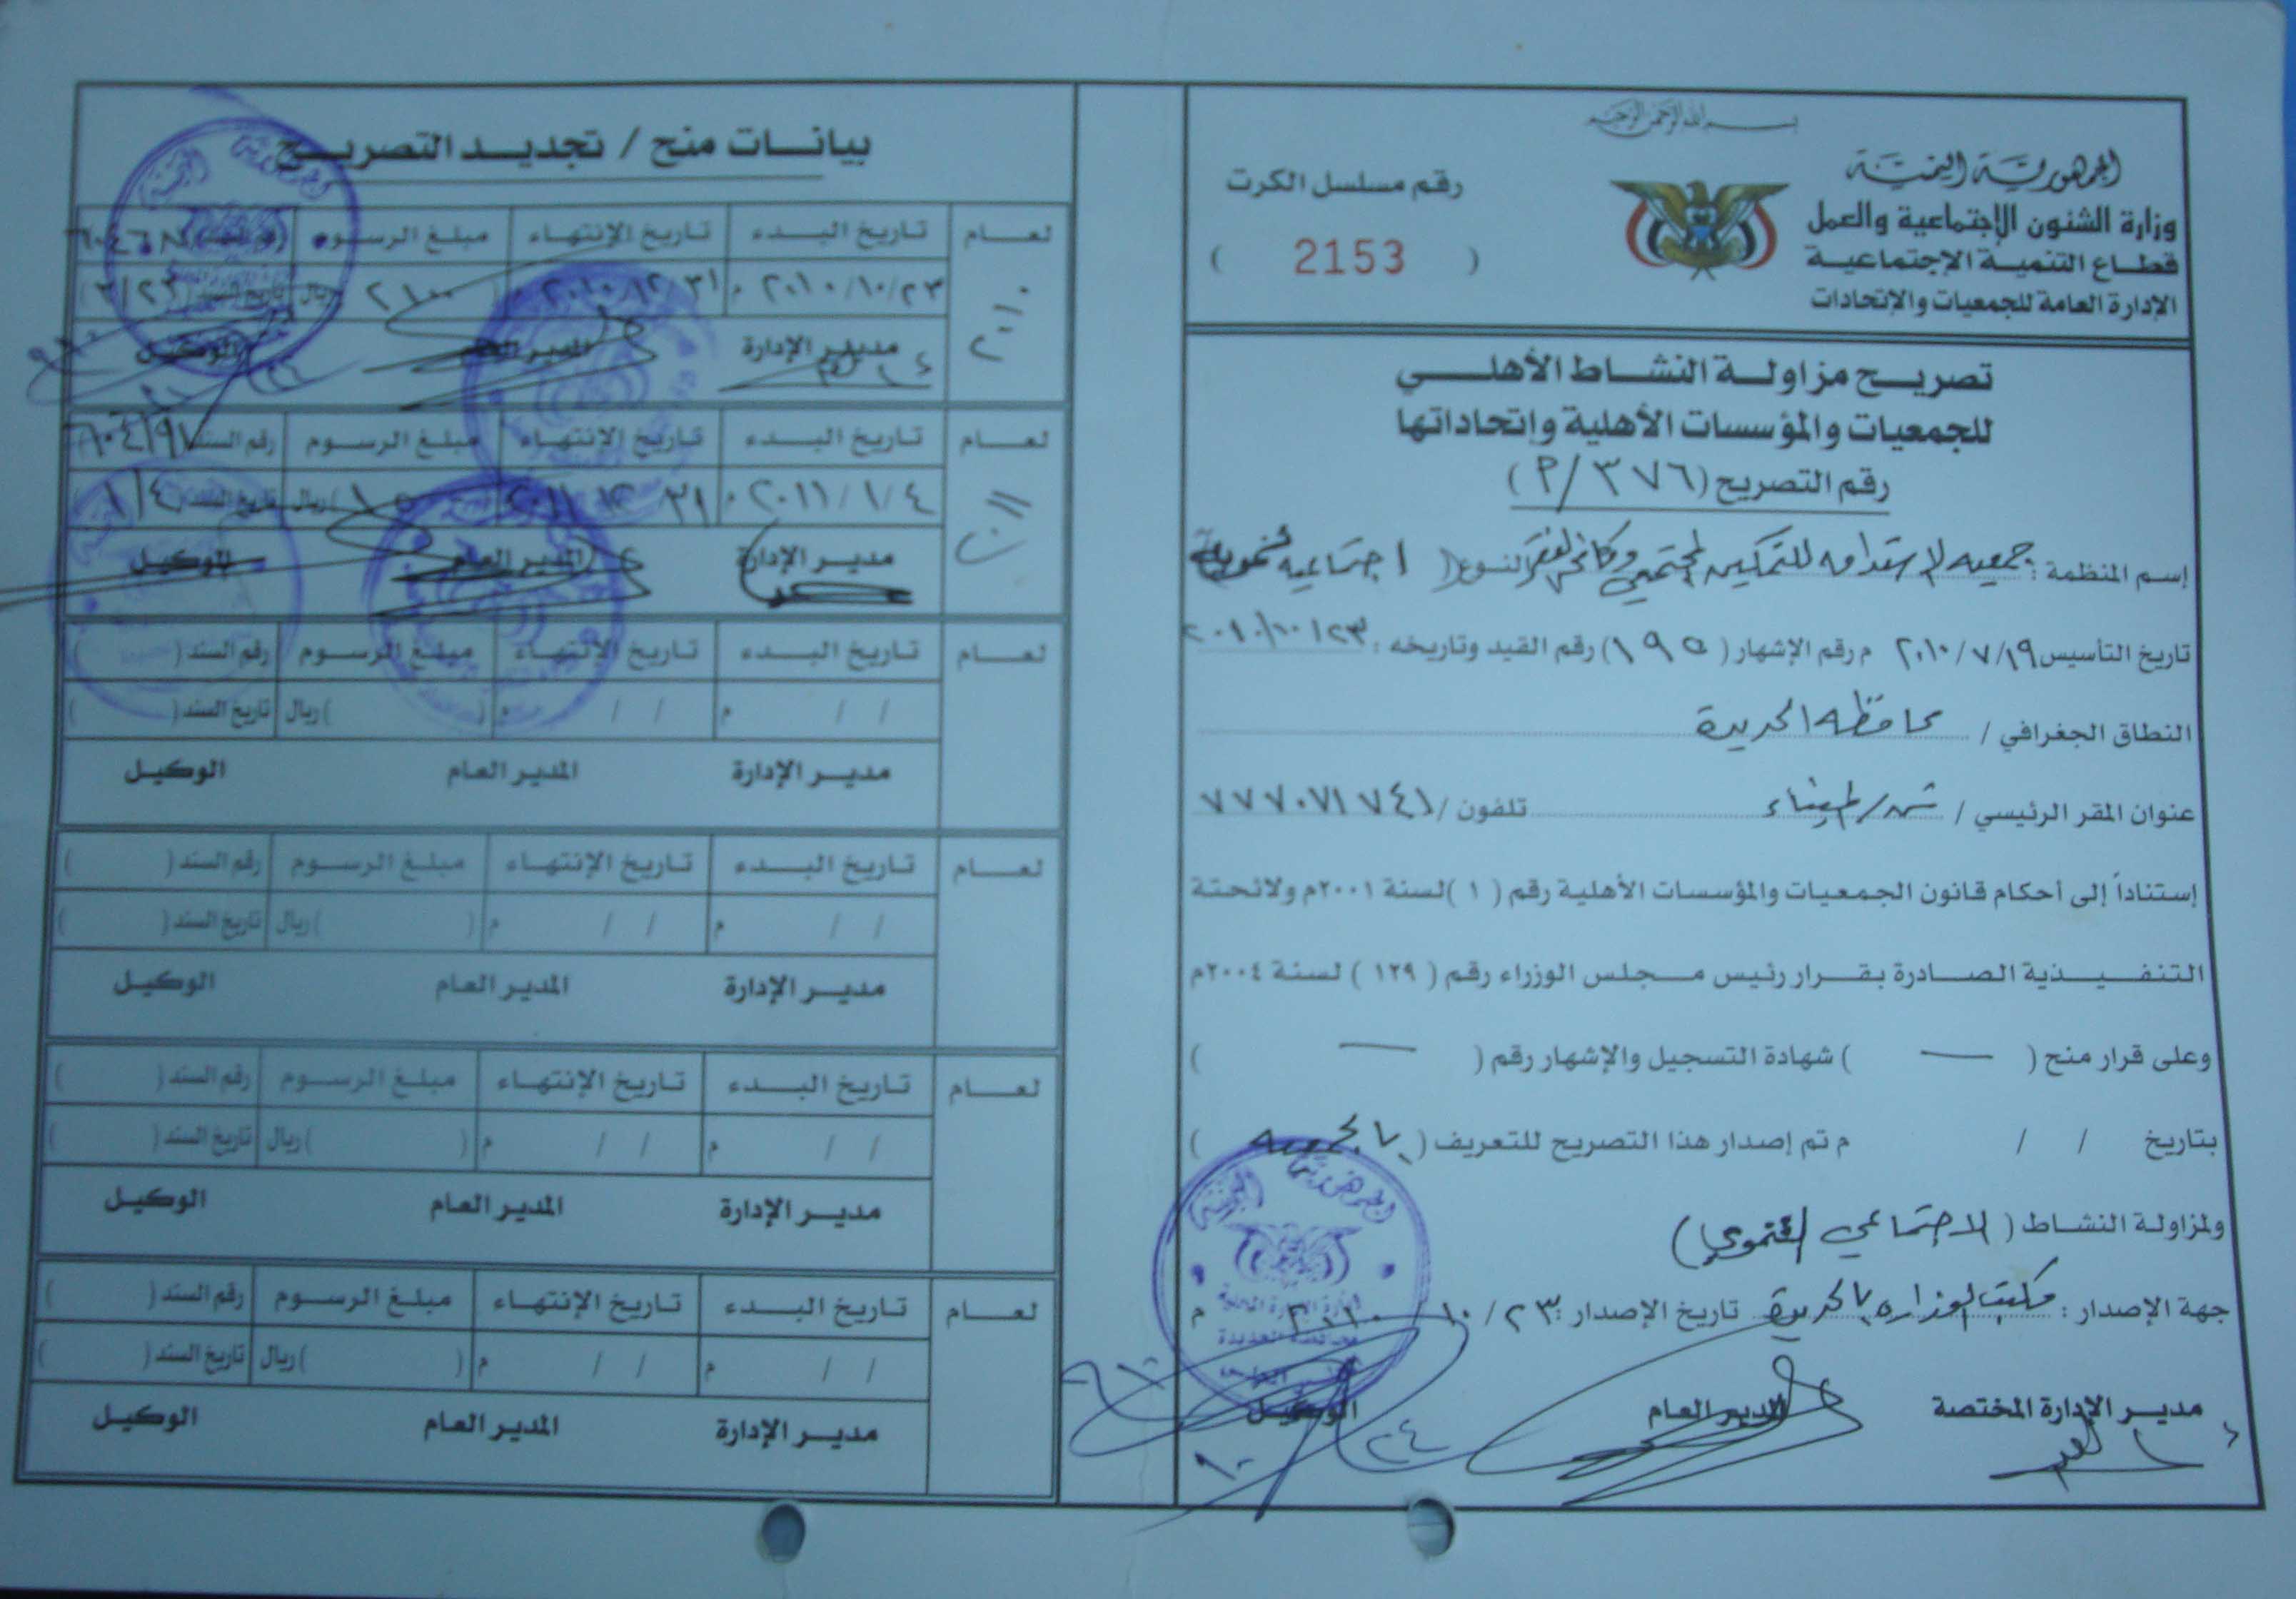 بسم الله الرحمن الرحيم
الجمهورية اليمنية
وزارة الشئون الإجتماعية والعمل
قطاع التنمية الإجتماعية
الإدارة العامة للجمعيات والإتحادات
رقم مسلسل الكرت
( 2153 )
تصريح مزاولة النشاط الأهلي
للجمعيات والمؤسسات الأهلية وإتحاداتها
رقم التصريح (٣٧٦/م)
إسم المنظمة : جمعيه الاستدامه للتمكين المجتمعي ومكافحة الفقر النوع ( اجتماعيه تنمويه
تاريخ التأسيس ٢٠١٠/٧/١٩ م رقم الإشهار ( ١٩٥ ) رقم القيد وتاريخه : ٢٠١٠/١٠/٢٣
النطاق الجغرافي / محافظه الحديدة
عنوان المقر الرئيسي / تلفون / ٧٧٧٠٧١٧٤١
إستناداً إلى أحكام قانون الجمعيات والمؤسسات الأهلية رقم ( ١ ) لسنة ٢٠٠١م ولائحتة
التنفيذية الصادرة بقرار رئيس مجلس الوزراء رقم ( ١٢٩ ) لسنة ٢٠٠٤م
وعلى قرار منح ( — ) شهادة التسجيل والإشهار رقم ( — )
بتاريخ / / م تم إصدار هذا التصريح للتعريف ( )
ولمزاولة النشاط ( الاجتماعي التنموي )
جهة الإصدار : مكتب الوزاره بالحديدة تاريخ الإصدار : ٢٣ / ١٠ / ٢٠١٠ م
مدير الإدارة المختصة المدير العام الوكيل
بيانات منح / تجديد التصريح
لعام تاريخ البدء تاريخ الإنتهاء مبلغ الرسوم
٢٠١٠ ٢٠١٠/١٠/٢٣ م ٢٠١٠/١٢/٣١ م ( ٢١٠٠ ) ريال تاريخ السند
مدير الإدارة المدير العام الوكيل
لعام تاريخ البدء تاريخ الإنتهاء مبلغ الرسوم رقم السند
٢٠١١ ٢٠١١/١/٤ م ٢٠١١/١٢/٣١ ريال تاريخ السند ( ١/٤ )
مدير الإدارة المدير العام الوكيل
لعام تاريخ البدء تاريخ الإنتهاء مبلغ الرسوم رقم السند ( )
/ / م / / م ( ) ريال تاريخ السند ( )
مدير الإدارة المدير العام الوكيل
لعام تاريخ البدء تاريخ الإنتهاء مبلغ الرسوم رقم السند ( )
/ / م / / م ( ) ريال تاريخ السند ( )
مدير الإدارة المدير العام الوكيل
لعام تاريخ البدء تاريخ الإنتهاء مبلغ الرسوم رقم السند ( )
/ / م / / م ( ) ريال تاريخ السند ( )
مدير الإدارة المدير العام الوكيل
لعام تاريخ البدء تاريخ الإنتهاء مبلغ الرسوم رقم السند ( )
/ / م / / م ( ) ريال تاريخ السند ( )
مدير الإدارة المدير العام الوكيل